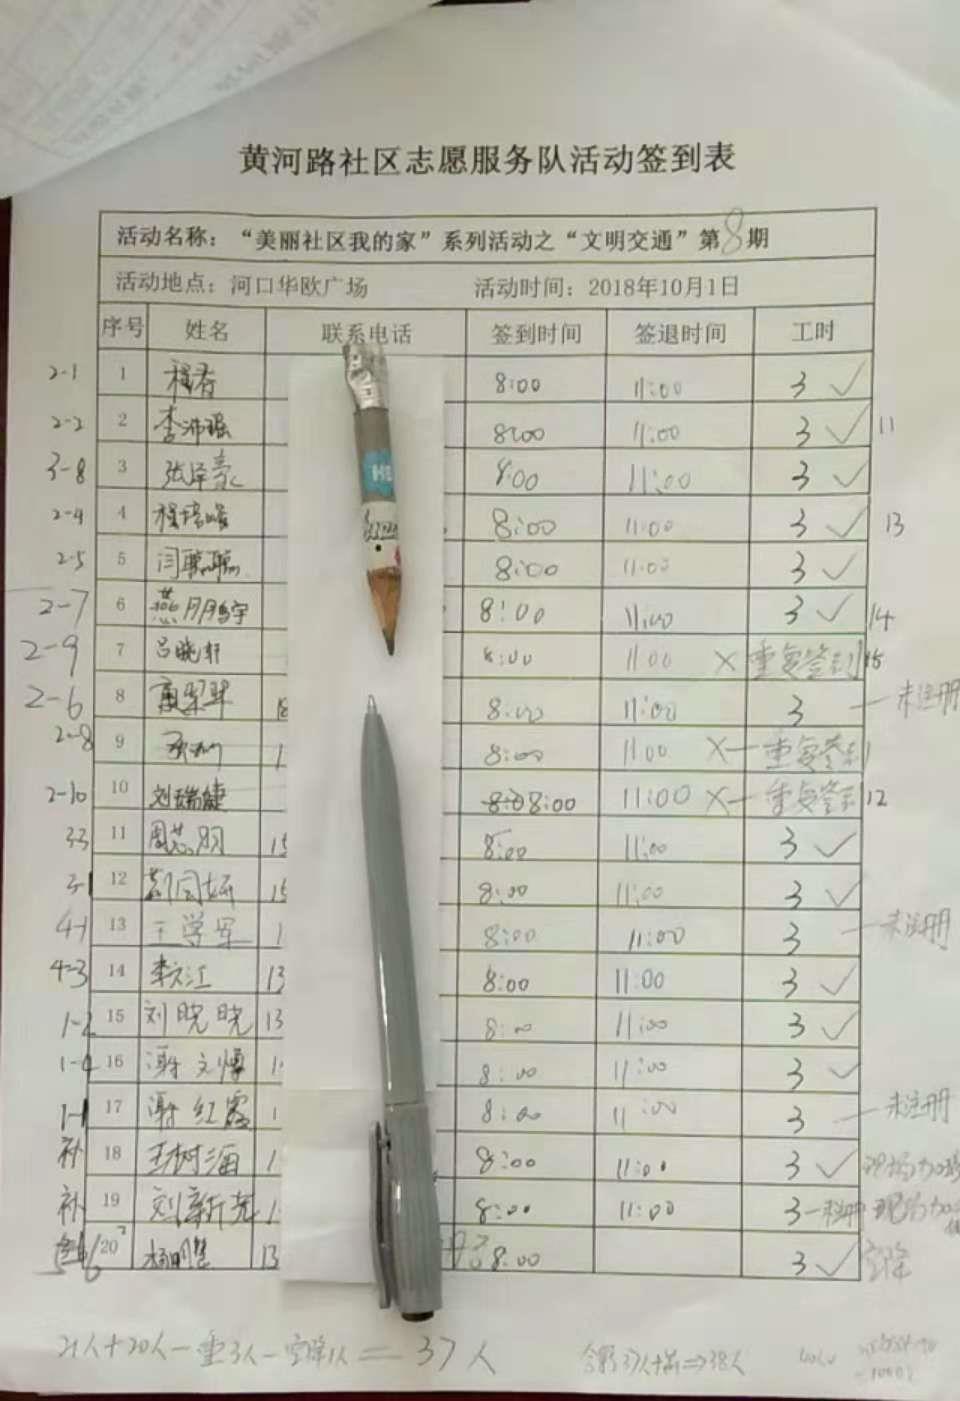 黄河路社区志愿服务队活动签到表
活动名称：“美丽社区我的家”系列活动之“文明交通”第8期
活动地点：河口华欧广场 活动时间：2018年10月1日
序号 姓名 联系电话 签到时间 签退时间 工时
2-1 1 8:00 11:00 3 ✓
2-2 2 李沛瑶 8:00 11:00 3 ✓ 11
3-8 3 张泽豪 8:00 11:00 3 ✓
2-4 4 程培峰 8:00 11:00 3 ✓ 13
2-5 5 闫聪聪 8:00 11:00 3 ✓
2-7 6 8:00 11:00 3 ✓ 14
2-9 7 吕晓轩 8:00 11:00 × 重复签到 15
2-6 8 8:00 11:00 3 — 未注册
2-8 9 8:00 11:00 ×— 重复签到
2-10 10 刘瑞健 8:00 11:00 ×— 重复签到 12
3-3 11 周芯羽 15 8:00 11:00 3 ✓
3-1 12 15 8:00 11:00 3 ✓
4-1 13 王学军 1 8:00 11:00 3 — 未注册
4-3 14 李文江 13 8:00 11:00 3 ✓
1-2 15 刘晓晓 13 8:00 11:00 3 ✓
1-4 16 谢文博 1 8:00 11:00 3 ✓
1-1 17 谢红霞 1 8:00 11:00 3 — 未注册
补 18 王树海 1 8:00 11:00 3 ✓ 现场加
补 19 刘新尧 1 8:00 11:00 3 — 未注册 现场加
20 13 8:00 3 ✓ 空降
21人+20人-重3人-空降1人=37人
37人+ ⇒38人